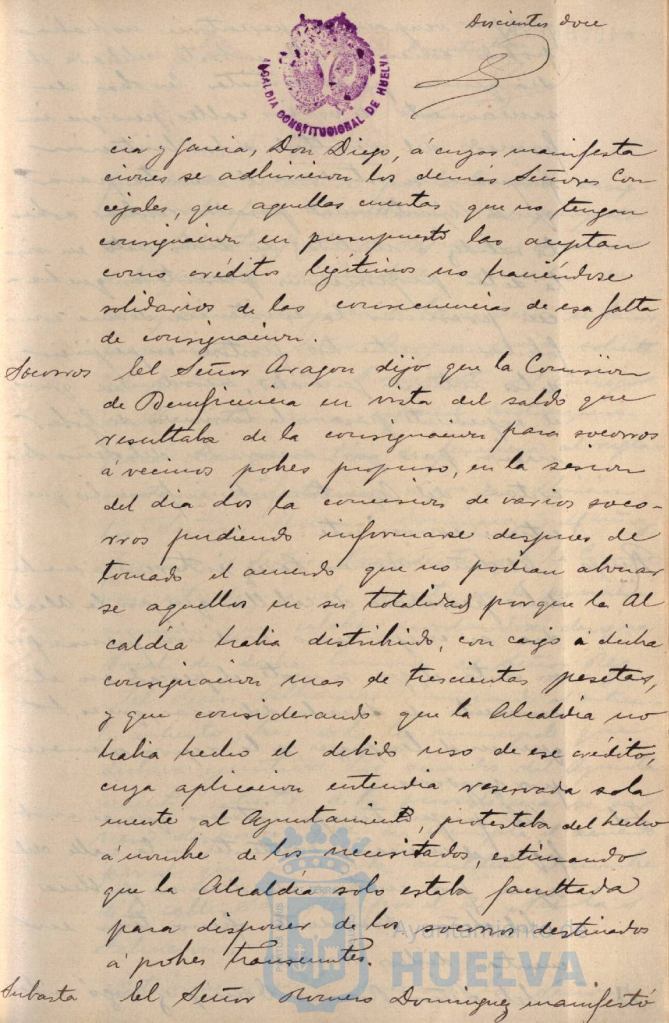 Doscientos doce
ALCALDIA CONSTITUCIONAL DE HUELVA
cia y Garcia, Don Diego, á cuyas manifesta
ciones se adhirieron los demas Señores Con
cejales, que aquellas cuentas que no tengan
consignacion en presupuesto las aceptan
como créditos legítimos no haciéndose
solidarios de las consecuencias de esa falta
de consignacion.
Socorros El Señor Aragon dijo que la Comision
de Beneficencia en vista del saldo que
resultaba de la consignacion para socorros
á vecinos pobres propuso, en la sesion
del dia dos la concesion de varios soco-
rros pudiendo informarse despues de
tomado el acuerdo que no podian abonar
se aquellos en su totalidad porque la Al
caldia habia distribuido, con cargo á dicha
consignacion mas de trescientas pesetas,
y que considerando que la Alcaldia no
habia hecho el debido uso de ese crédito,
cuya aplicacion entendia reservada sola
mente al Ayuntamiento, protestaba del hecho
á nombre de los necesitados, estimando
que la Alcaldía solo estaba facultada
para disponer de los socorros destinados
á pobres transeuntes.
Ayuntamiento de
HUELVA
Subasta El Señor Romero Dominguez manifestó